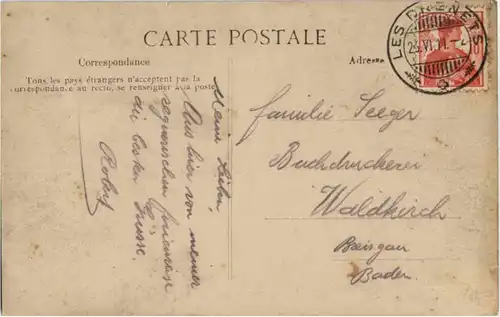 CARTE POSTALE
Correspondance
Tous les pays étrangers n'acceptent pas la
correspondance au recto, se renseigner à la poste
Adresse
LES BRENETS
23.VI.11.-2
Meine Lieben,
Aus hier von meiner
die besten Grüsse.
Robert
Familie Seeger
Buchdruckerei
Waldkirch
Breisgau
Baden.